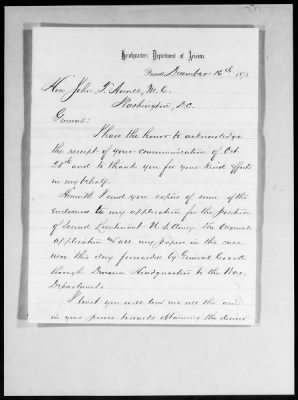 Headquarters Department of Arizona
December 16th 1873
Hon. John T. Averill, M.C.
Washington, D.C.
General:
I have the honor to acknowledge
the receipt of your communication of Oct
28th and to thank you for your kind efforts
in my behalf.
Herewith I send you copies of some of the
enclosures to my application for the position
of Second Lieutenant U.S. Army. The original
application & all my papers in the case
were this day forwarded by General Crook
through Division Headquarters to the War
Department.
I trust you will lend me all the aid
in your power towards obtaining the desired